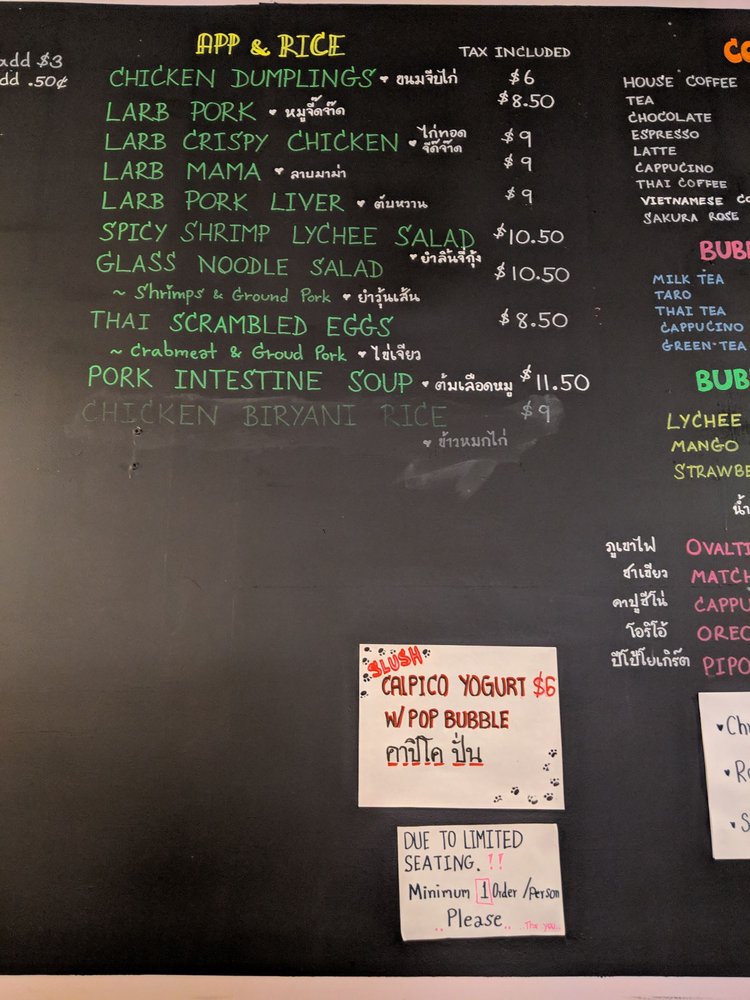 add $3
add .50¢
APP & RICE
TAX INCLUDED
CHICKEN DUMPLINGS ♥ ขนมจีบไก่ $6
LARB PORK ♥ หมูจี๊ดจ๊าด $8.50
LARB CRISPY CHICKEN ♥ ไก่ทอด จี๊ดจ๊าด $9
LARB MAMA ♥ ลาบมาม่า $9
LARB PORK LIVER ♥ ตับหวาน $9
SPICY SHRIMP LYCHEE SALAD $10.50
♥ ยำลิ้นจี่กุ้ง
GLASS NOODLE SALAD $10.50
~ Shrimps & Ground Pork ♥ ยำวุ้นเส้น
THAI SCRAMBLED EGGS $8.50
~ Crabmeat & Groud Pork ♥ ไข่เจียว
PORK INTESTINE SOUP ♥ ต้มเลือดหมู $11.50
CHICKEN BIRYANI RICE $9
♥ ข้าวหมกไก่
CO
HOUSE COFFEE
TEA
CHOCOLATE
ESPRESSO
LATTE
CAPPUCINO
THAI COFFEE
VIETNAMESE CO
SAKURA ROSE
BUBB
MILK TEA
TARO
THAI TEA
CAPPUCINO
GREEN-TEA
BUBB
LYCHEE
MANGO
STRAWBE
น้ำ
ภูเขาไฟ OVALTI
ชาเขียว MATCH
คาปูชิโน่ CAPPU
โอริโอ้ OREO
ปีโป้โยเกิร์ต PIPO
SLUSH
CALPICO YOGURT $6
W/ POP BUBBLE
คาปิโค ปั่น
DUE TO LIMITED
SEATING.!!
Minimum 1 Order /Person
Please
♥ Ch
♥ R
♥ S